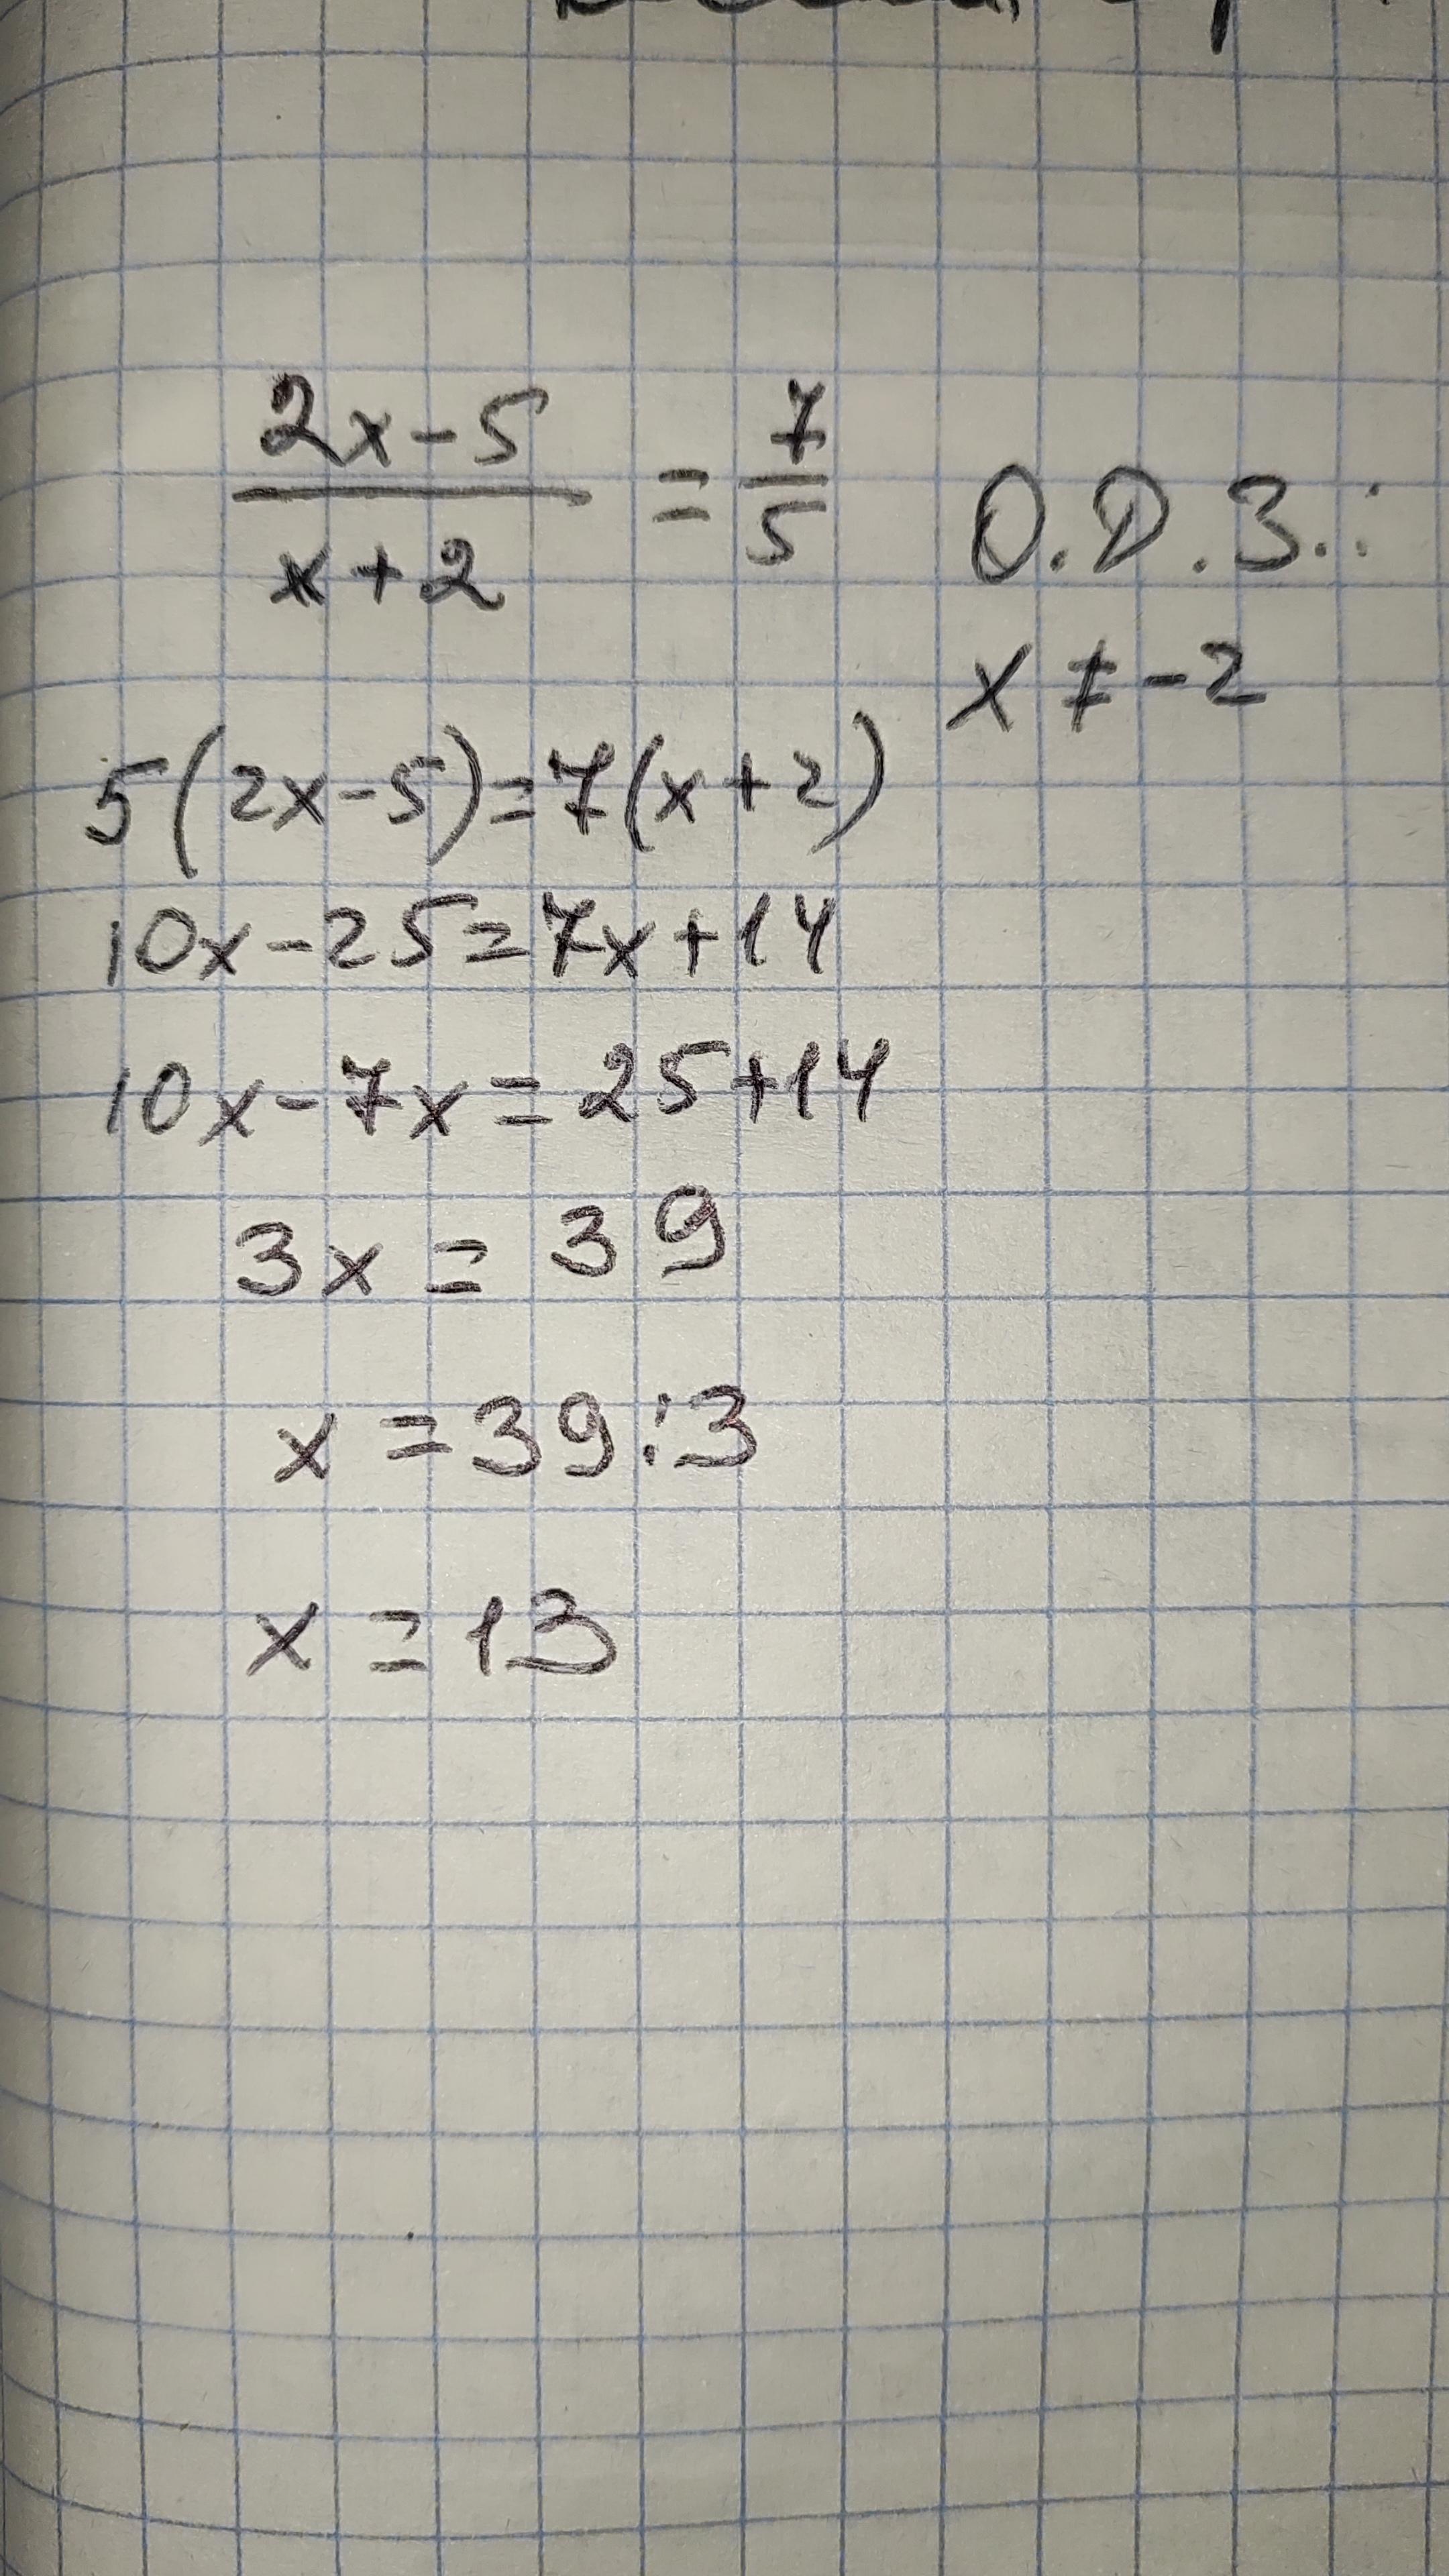 2x-5 / x+2 = 7/5 О.D.З.:
x ≠ -2
5(2x-5)=7(x+2)
10x-25=7x+14
10x-7x=25+14
3x=39
x=39:3
x=13